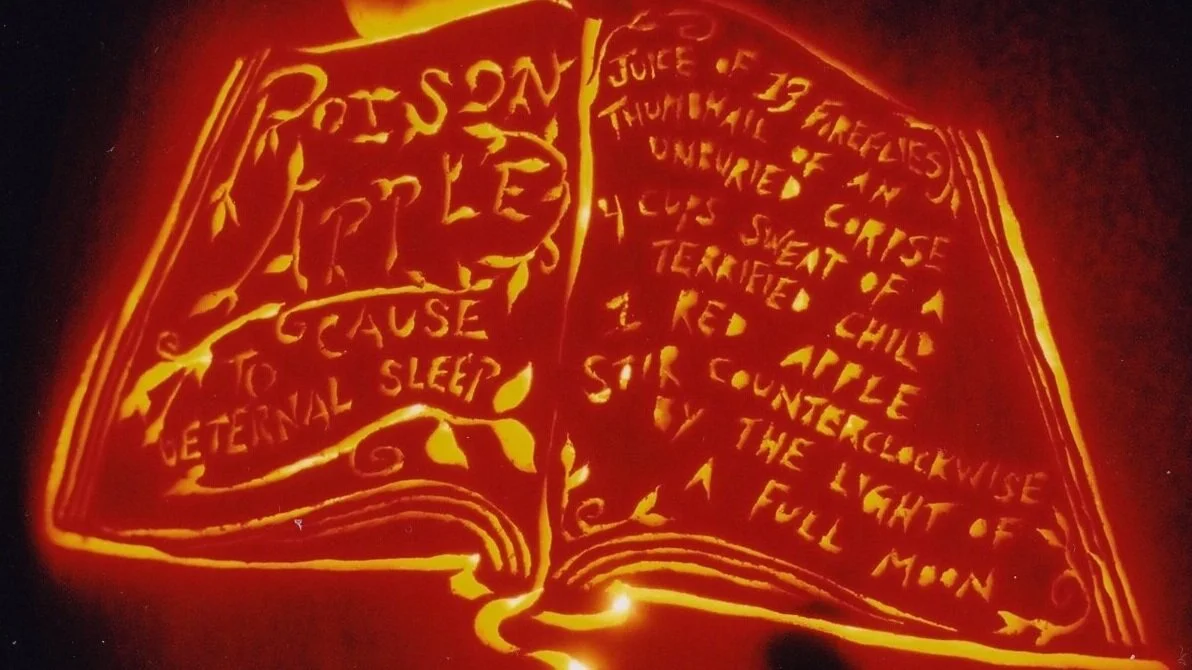 POISON
APPLE
CAUSE
TO
ETERNAL SLEEP
JUICE OF 13 FIREFLIES
THUMBNAIL OF AN
UNBURIED CORPSE
4 CUPS SWEAT OF A
TERRIFIED CHILD
1 RED APPLE
STIR COUNTERCLOCKWISE
BY THE LIGHT OF
A FULL MOON